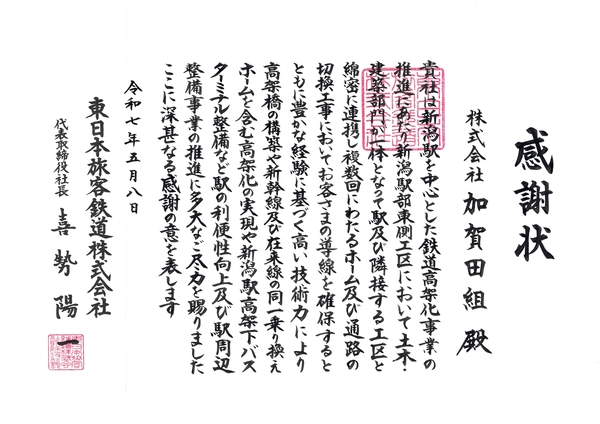 感謝状
株式会社 加賀田組 殿
貴社は新潟駅を中心とした鉄道高架化事業の
推進にあたり新潟駅部東側工区において土木・
建築部門が一体となって駅及び隣接する工区と
綿密に連携し複数回にわたるホーム及び通路の
切換工事においてお客さまの導線を確保すると
ともに豊かな経験に基づく高い技術力により
高架橋の構築や新幹線及び在来線の同一乗り換え
ホームを含む高架化の実現や新潟駅高架下バス
ターミナル整備など駅の利便性向上及び駅周辺
整備事業の推進に多大なご尽力を賜りました
ここに深甚なる感謝の意を表します
令和七年五月八日
東日本旅客鉄道株式会社
代表取締役社長 喜㔟陽一